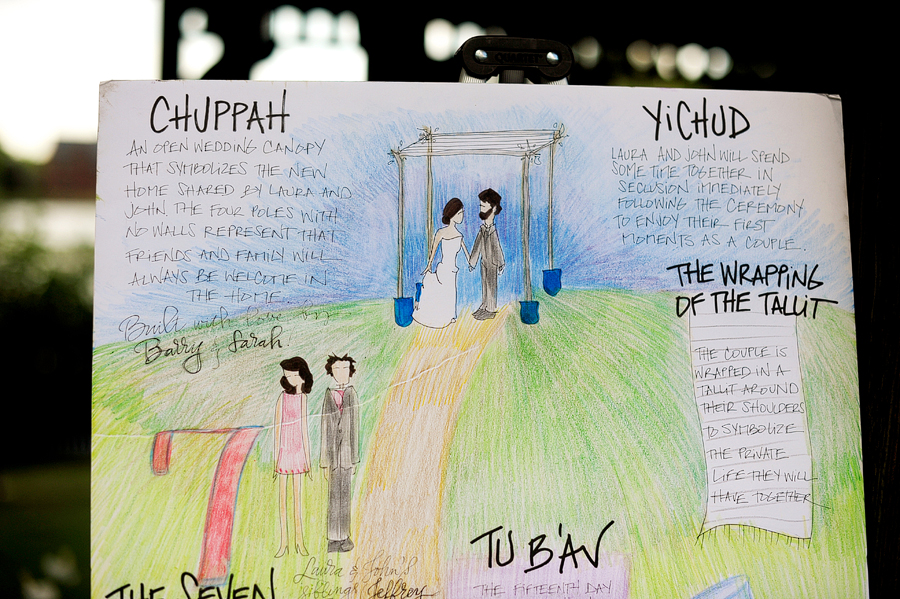 CHUPPAH
AN OPEN WEDDING CANOPY
THAT SYMBOLIZES THE NEW
HOME SHARED BY LAURA AND
JOHN. THE FOUR POLES WITH
NO WALLS REPRESENT THAT
FRIENDS AND FAMILY WILL
ALWAYS BE WELCOME IN
THE HOME.
Built with love by
Barry & Sarah.
YiCHUD
LAURA AND JOHN WILL SPEND
SOME TIME TOGETHER IN
SECLUSION IMMEDIATELY
FOLLOWING THE CEREMONY
TO ENJOY THEIR FIRST
MOMENTS AS A COUPLE.
THE WRAPPING
OF THE TALLIT
THE COUPLE IS
WRAPPED IN A
TALLIT AROUND
THEIR SHOULDERS
TO SYMBOLIZE
THE PRIVATE
LIFE THEY WILL
HAVE TOGETHER
7
THE SEVEN
Laura & John's
siblings Jeffrey
TU B'AV
THE FIFTEENTH DAY